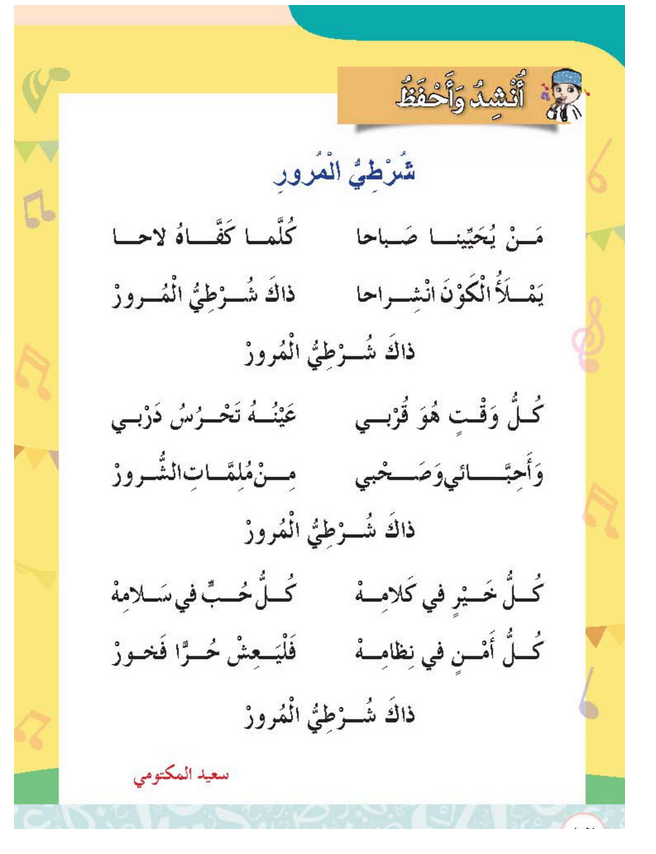 أُنْشِدُ وَأَحْفَظُ
شُرْطِيُّ الْمُرورِ
مَــنْ يُحَيِّينــــا صَبــاحا كُلَّمــا كَفَّــــاهُ لاحــــا
يَمْــلَأُ الْكَوْنَ انْشِــــراحا ذاكَ شُــــرْطِيُّ الْمُــرورْ
ذاكَ شُــــرْطِيُّ الْمُرورْ
كُــلُّ وَقْــتٍ هُوَ قُرْبــي عَيْنُــهُ تَحْــرُسُ دَرْبــي
وَأَحِبَّــــائي وَصَــــحْبي مِــنْ مُلِمَّــاتِ الشُّــرورْ
ذاكَ شُــــرْطِيُّ الْمُرورْ
كُــلُّ خَــيْرٍ في كَلامِــهْ كُــلُّ حُــبٍّ في سَــلامِهْ
كُــلُّ أَمْــنٍ في نِظامِــهْ فَلْيَــعِشْ حُــرًّا فَخــورْ
ذاكَ شُــــرْطِيُّ الْمُرورْ
سعيد المكتومي